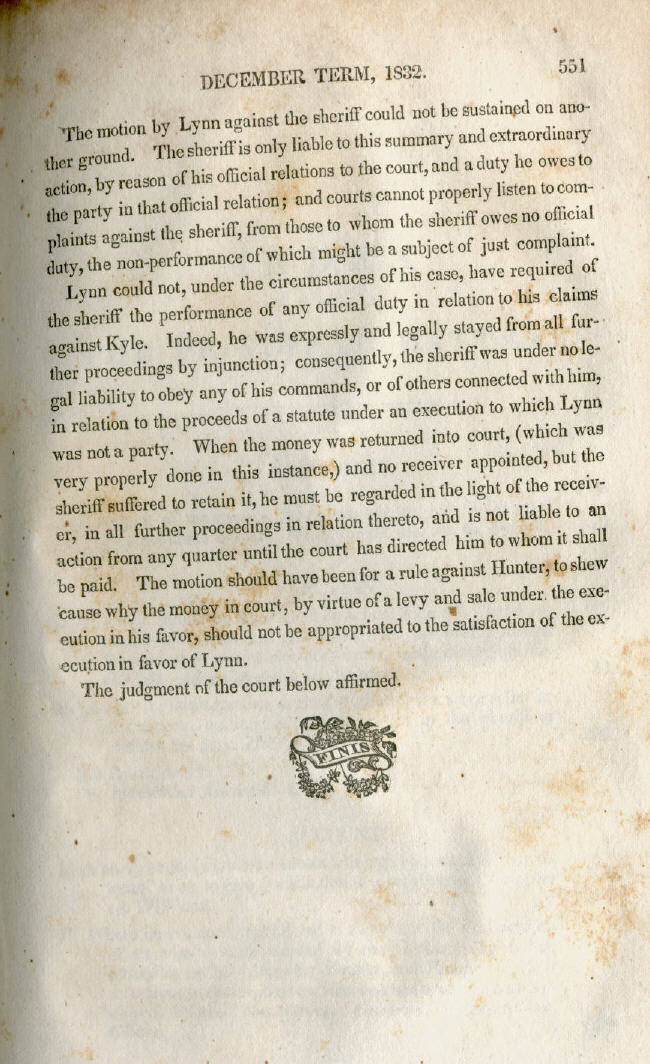 DECEMBER TERM, 1832. 551
The motion by Lynn against the sheriff could not be sustained on ano-
ther ground. The sheriff is only liable to this summary and extraordinary
action, by reason of his official relations to the court, and a duty he owes to
the party in that official relation; and courts cannot properly listen to com-
plaints against the sheriff, from those to whom the sheriff owes no official
duty, the non-performance of which might be a subject of just complaint.
Lynn could not, under the circumstances of his case, have required of
the sheriff the performance of any official duty in relation to his claims
against Kyle. Indeed, he was expressly and legally stayed from all fur-
ther proceedings by injunction; consequently, the sheriff was under no le-
gal liability to obey any of his commands, or of others connected with him,
in relation to the proceeds of a statute under an execution to which Lynn
was not a party. When the money was returned into court, (which was
very properly done in this instance,) and no receiver appointed, but the
sheriff suffered to retain it, he must be regarded in the light of the receiv-
er, in all further proceedings in relation thereto, and is not liable to an
action from any quarter until the court has directed him to whom it shall
be paid. The motion should have been for a rule against Hunter, to shew
cause why the money in court, by virtue of a levy and sale under the exe-
eution in his favor, should not be appropriated to the satisfaction of the ex-
ecution in favor of Lynn.
The judgment of the court below affirmed.
FINIS